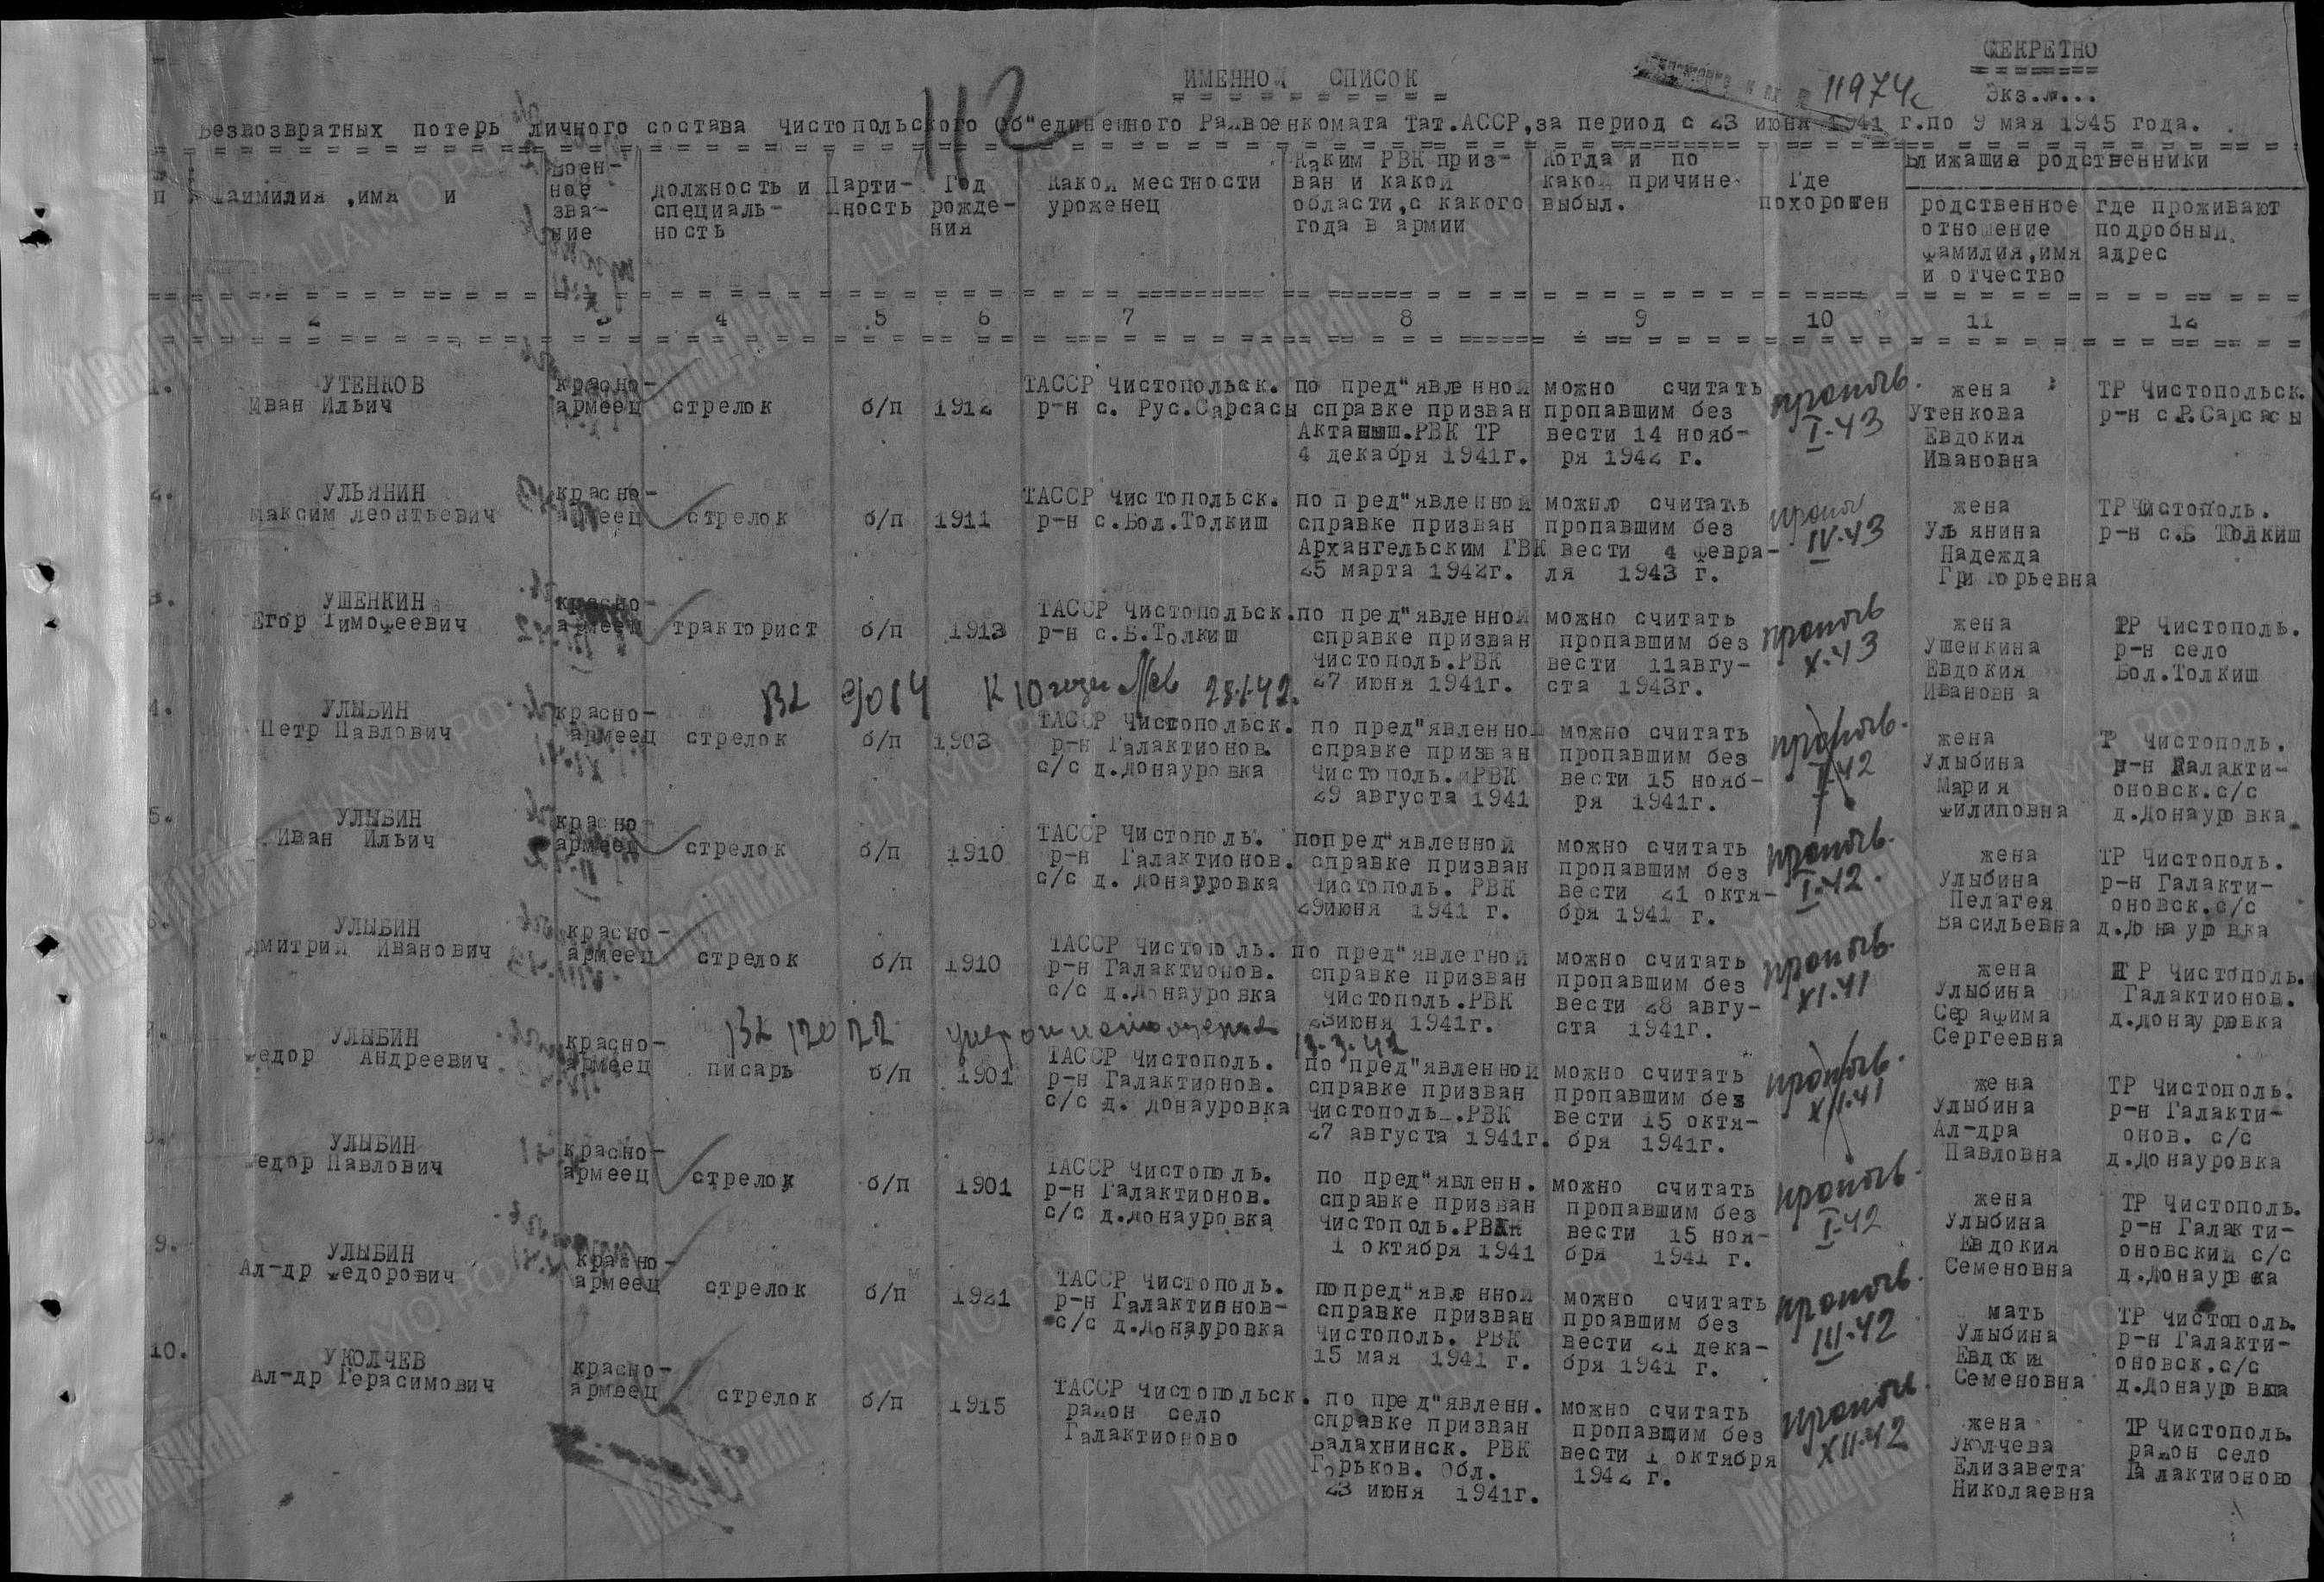 СЕКРЕТНО
ИМЕННОЙ СПИСОК
11974с
Экз.№...
безвозвратных потерь личного состава Чистопольского Об"единенного Райвоенкомата Тат.АССР,за период с 23 июня 1941 г.по 9 мая 1945 года.
Фаимилия ,имя и
Воен-
ное
зва-
ние
должность и
специаль-
ность
Парти-
йность
Год
рожде-
ния
Какой местности
уроженец
Каким РВК приз-
ван и какой
области,с какого
года в армии
Когда и по
какой причине
выбыл.
Где
похоронен
Ближашие родственники
родственное
отношение
фамилия,имя
и отчество
где проживают
подробный
адрес
2 3 4 5 6 7 8 9 10 11 12
1.
УТЕНКОВ
Иван Ильич
красно-
армеец
стрелок
б/п
1912
ТАССР Чистопольск.
р-н с. Рус.Сарсасы
по пред"явленной
справке призван
Актаныш.РВК ТР
4 декабря 1941г.
можно считать
пропавшим без
вести 14 нояб-
ря 1942 г.
I-43
жена
Утенкова
Евдокия
Ивановна
ТР Чистопольск.
р-н с.Р.Сарсасы
2.
УЛЬЯНИН
Максим Леонтьевич
красно-
армеец
стрелок
б/п
1911
ТАССР Чистопольск.
р-н с.Бол.Толкиш
по пред"явленной
справке призван
Архангельским ГВК
25 марта 1942г.
можню считать
пропавшим без
вести 4 февра-
ля 1943 г.
IV-43
жена
Ульянина
Надежда
Григорьевна
ТР Чистополь.
р-н с.Б Толкиш
3.
УШЕНКИН
Егор Тимофеевич
красно-
армеец
тракторист
б/п
1913
ТАССР Чистопольск.
р-н с.Б.Толкиш
по пред"явленной
справке призван
Чистополь.РВК
27 июня 1941г.
можно считать
пропавшим без
вести 11авгу-
ста 1943г.
X-43
жена
Ушенкина
Евдокия
Ивановна
ТР Чистополь.
р-н село
Бол.Толкиш
4.
УЛЫБИН
Петр Павлович
красно-
армеец
стрелок
б/п
1903
ТАССР Чистопольск.
р-н Галактионов.
с/с д.Донауровка
по пред"явленной
справке призван
Чистополь.РВК
29 августа 1941
можно считать
пропавшим без
вести 15 нояб-
ря 1941г.
жена
Улыбина
Мария
Филиповна
Чистополь.
р-н Галакти-
оновск.с/с
д.Донауровка
5.
УЛЫБИН
Иван Ильич
красно-
армеец
стрелок
б/п
1910
ТАССР Чистополь.
р-н Галактионов.
с/с д. Донауровка
попред"явленной
справке призван
Чистополь. РВК
29июня 1941 г.
можно считать
пропавшим без
вести 21 октя-
бря 1941 г.
I-42.
жена
Улыбина
Пелагея
Васильевна
ТР Чистополь.
р-н Галакти-
оновск.с/с
д.Донауровка
6.
УЛЫБИН
Дмитрий Иванович
красно-
армеец
стрелок
б/п
1910
ТАССР Чистополь.
р-н Галактионов.
с/с д.Донауровка
по пред"явленной
справке призван
Чистополь.РВК
23июня 1941г.
можно считать
пропавшим без
вести 28 авгу-
ста 1941г.
XI-41
жена
Улыбина
Серафима
Сергеевна
Чистополь.
Галактионов.
д.Донауровка
7.
УЛЫБИН
Федор Андреевич
красно-
армеец
писарь
б/п
1901
13.3.42
ТАССР Чистополь.
р-н Галактионов.
с/с д. Донауровка
по пред"явленной
справке призван
Чистополь.РВК
27 августа 1941г.
можно считать
пропавшим без
вести 15 октя-
бря 1941г.
XII-41
жена
Улыбина
Ал-дра
Павловна
ТР Чистополь.
р-н Галакти-
онов. с/с
д.Донауровка
8.
УЛЫБИН
Федор Павлович
красно-
армеец
стрелок
б/п
1901
ТАССР Чистополь.
р-н Галактионов.
с/с д.Донауровка
по пред"явленн.
справке призван
Чистополь.РВК
1 октября 1941
можно считать
пропавшим без
вести 15 ноя-
бря 1941 г.
I-42
жена
Улыбина
Евдокия
Семеновна
ТР Чистополь.
р-н Галакти-
оновский с/с
д.Донауровка
9.
УЛЫБИН
Ал-др Федорович
красно-
армеец
стрелок
б/п
1921
ТАССР Чистополь.
р-н Галактионов-
с/с д.Донауровка
попред"явленной
справке призван
Чистополь. РВК
15 мая 1941 г.
можно считать
проавшим без
вести 21 дека-
бря 1941 г.
III-42
мать
Улыбина
Евдокия
Семеновна
ТР Чистополь.
р-н Галакти-
оновск.с/с
д.Донауровка
10.
УКОЛЧЕВ
Ал-др Герасимович
красно-
армеец
стрелок
б/п
1915
ТАССР Чистопольск.
район село
Галактионово
по пред"явленн.
справке призван
Балахнинск. РВК
Горьков. Обл.
23 июня 1941г.
можно считать
пропавщим без
вести 1 октября
1942 г.
XII-42
жена
Уколчева
Елизавета
Николаевна
ТР Чистополь.
район село
Галактионово